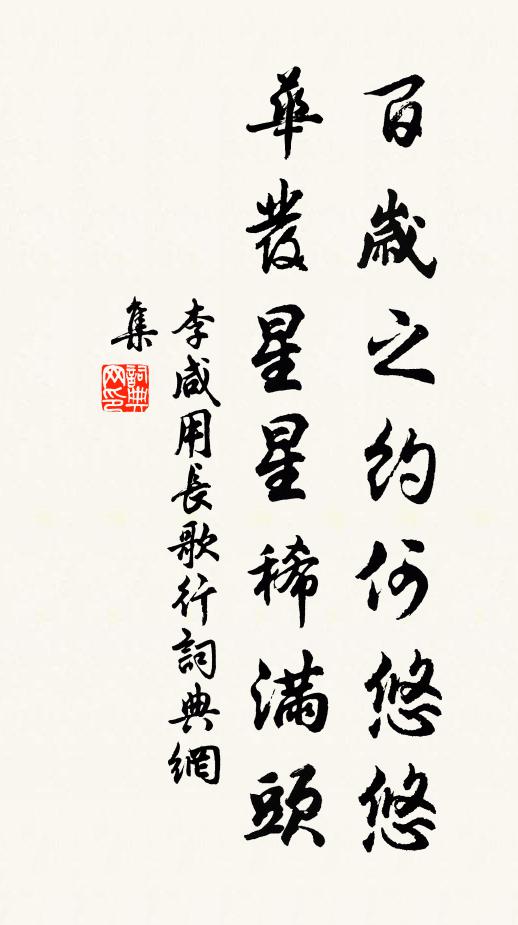 百歲之約何悠悠
華發星星稀滿頭
李咸用長歌行詞典網
集
詞典網印